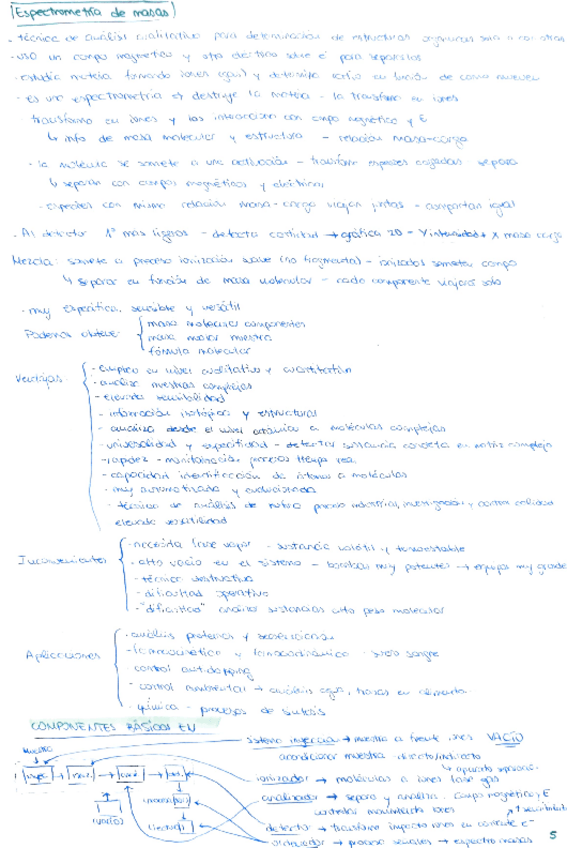 Espectrometría de masas
- técnica de análisis cualitativo para determinación de estructuras orgánicas sola o con otras
- uso un campo magnético y otro eléctrico sobre para separarlos
- estudia materia formando iones (gas) y
- es una espectrometría destruye la materia - la transforma en iones
transforma en iones y los interacciona con campo magnético y E
↳ info de masa molecular y estructura - relación masa-carga
- la molécula se somete a una activación - transforma especies cargadas separa
↳ separa con campos magnéticos y eléctricos
- especies con misma relación masa-carga viajan juntas - comportan igual
- Al detector 1º mas ligeros - detecta cantidad → gráfica 2D - Y intensidad X masa carga
Mezcla: somete a proceso ionización suave (no fragmenta) - ionizados someter campo
↳ separar en función de masa molecular - cada componente viajará solo
- muy específica, sensible y versátil
Podemos obtener
masa molecular componentes
masa muestra
fórmula molecular
Ventajas
- empleo en nivel cualitativo y cuantitativo
- analiza muestras complejas
- elevada sensibilidad
- información isotópica y estructuras
- analiza desde el nivel atómico a moléculas complejas
- universalidad y especificidad - detectar sustancia concreta en matriz compleja
- rapidez - monitorización procesos tiempo real
- capacidad identificación de átomos a moléculas
- muy automatizada y evolucionada
- técnica de análisis de rutina proceso industrial, investigación y control calidad
elevada versatilidad
Inconvenientes
- necesita fase vapor - sustancia volátil y termoestable
- alto vacío en el sistema - bombas muy potentes → equipos muy grande
- técnica destructiva
- dificultad operativa
- "dificultad" analiza sustancias alto peso molecular
Aplicaciones
- análisis proteínas y
- farmacocinética y farmacodinámica sangre
- control antidopping
- control ambiental → análisis agua, trazas en alimento
- química - procesos de síntesis
COMPONENTES BÁSICOS EN
Muestra
sistema inyección → muestra a fuente iones VACÍO
acondicionar muestra directo/indirecto
ionizador → moléculas a iones fase gas
analizador → separa y analiza. Campo magnético y E
controlar movimiento iones
detector → transforma impacto iones en corriente e⁻
ordenador → procesa señales → espectro masas
vacío
5